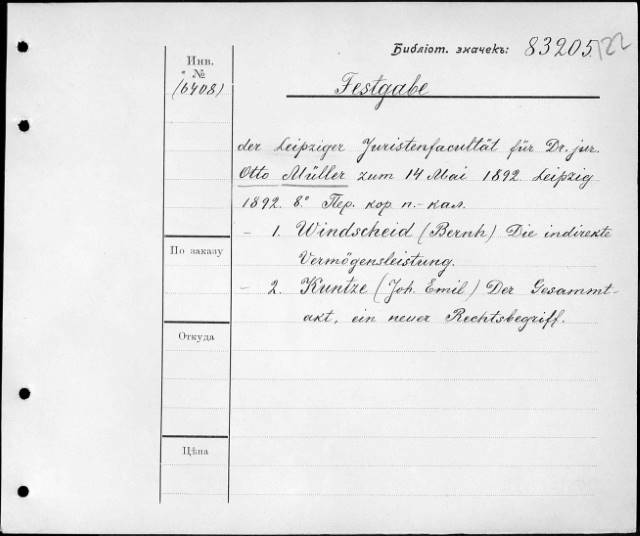 Библіот. значекъ: 83205/22
Инв.
№
(6408)
Festgabe
der Leipziger Juristenfacultät für Dr. jur.
Otto Müller zum 14 Mai 1892. Leipzig
1892. 8° Пер. кор п.-кал.
- 1. Windscheid (Bernh) Die indirekte
Vermögensleistung.
- 2. Kuntze (Joh. Emil) Der Gesammt-
akt, ein neuer Rechtsbegriff.
По заказу
Откуда
Цѣна